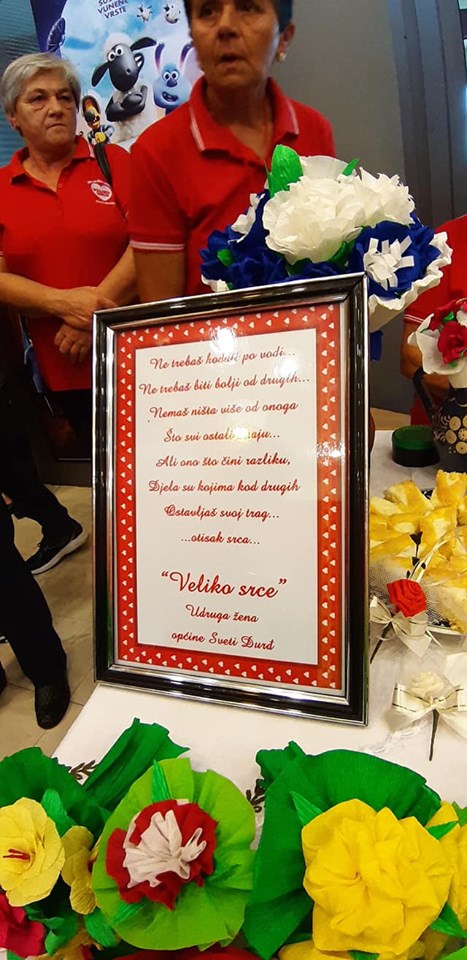 VUNENE
VRSTE
Ne trebaš hodati po vodi...
Ne trebaš biti bolji od drugih...
Nemaš ništa više od onoga
Što svi ostali imaju...
Ali ono što čini razliku,
Djela su kojima kod drugih
Ostavljaš svoj trag...
...otisak srca...
"Veliko srce"
Udruga žena
općine Sveti Đurđ